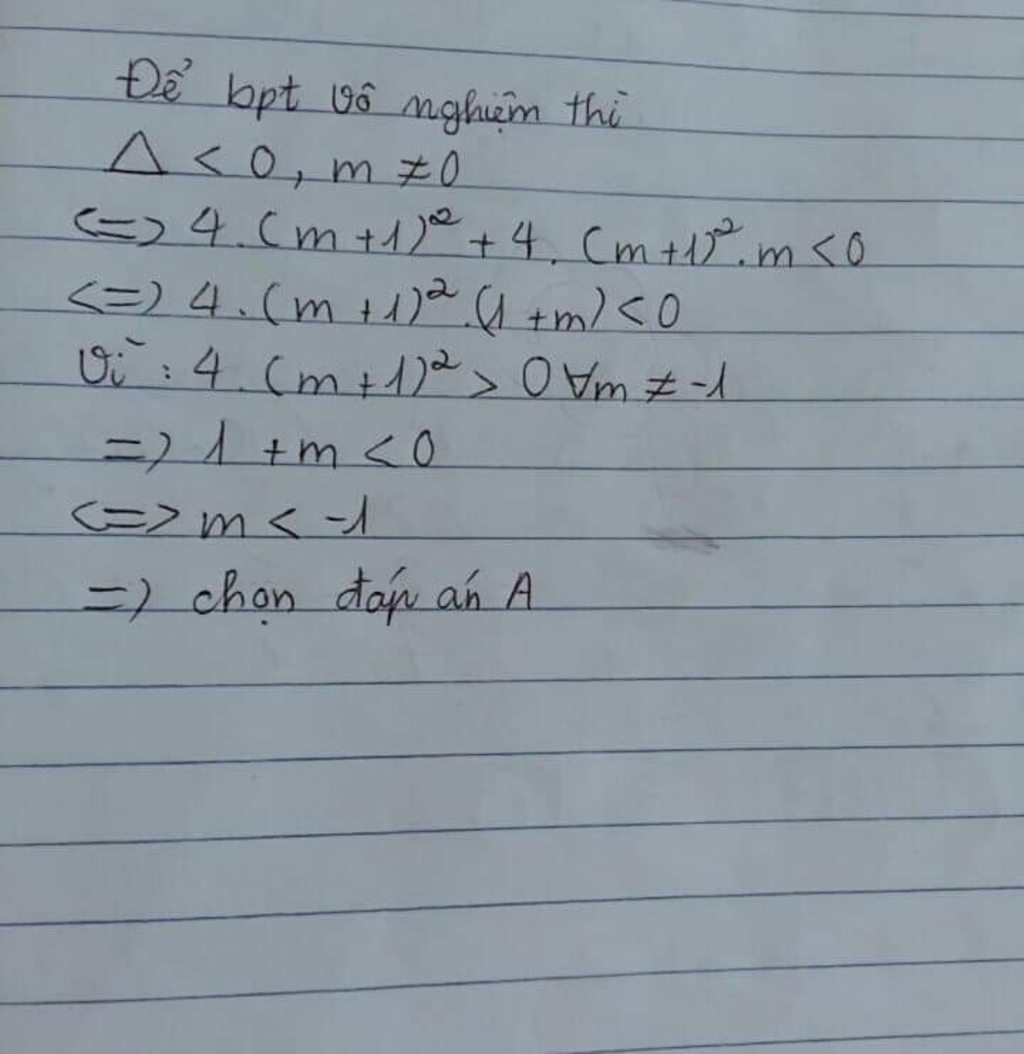 Để bpt vô nghiệm thì
Δ < 0, m ≠ 0
<=> 4.(m+1)² + 4.(m+1)².m < 0
<=> 4.(m+1)².(1+m) < 0
Vì: 4.(m+1)² > 0 ∀m ≠ -1
=> 1 + m < 0
<=> m < -1
=> chọn đáp án A